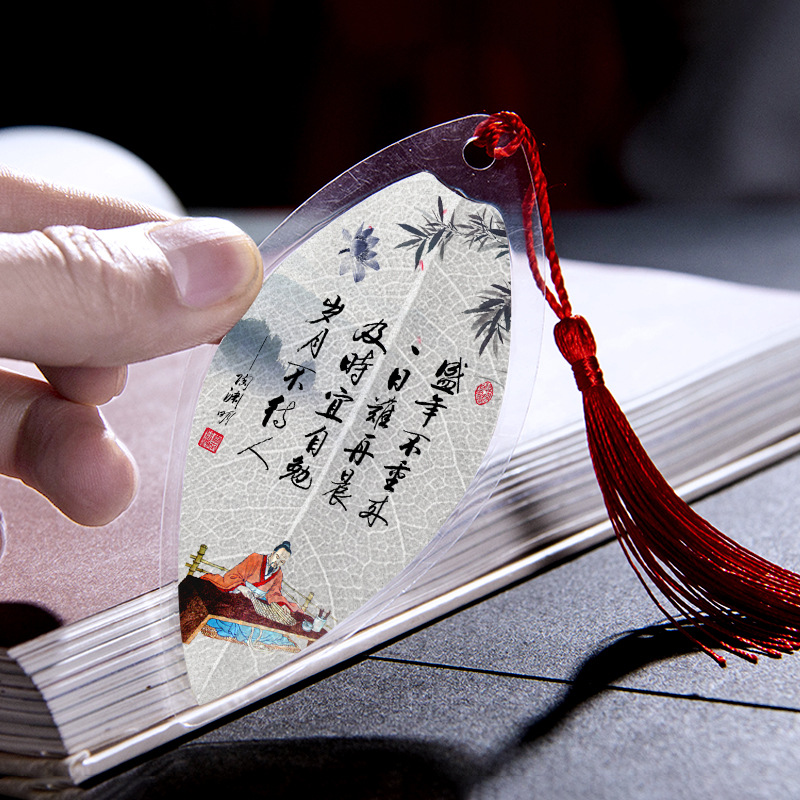 盛年不重来
一日難再晨
及時宜自勉
岁月不待人
—陶渊明